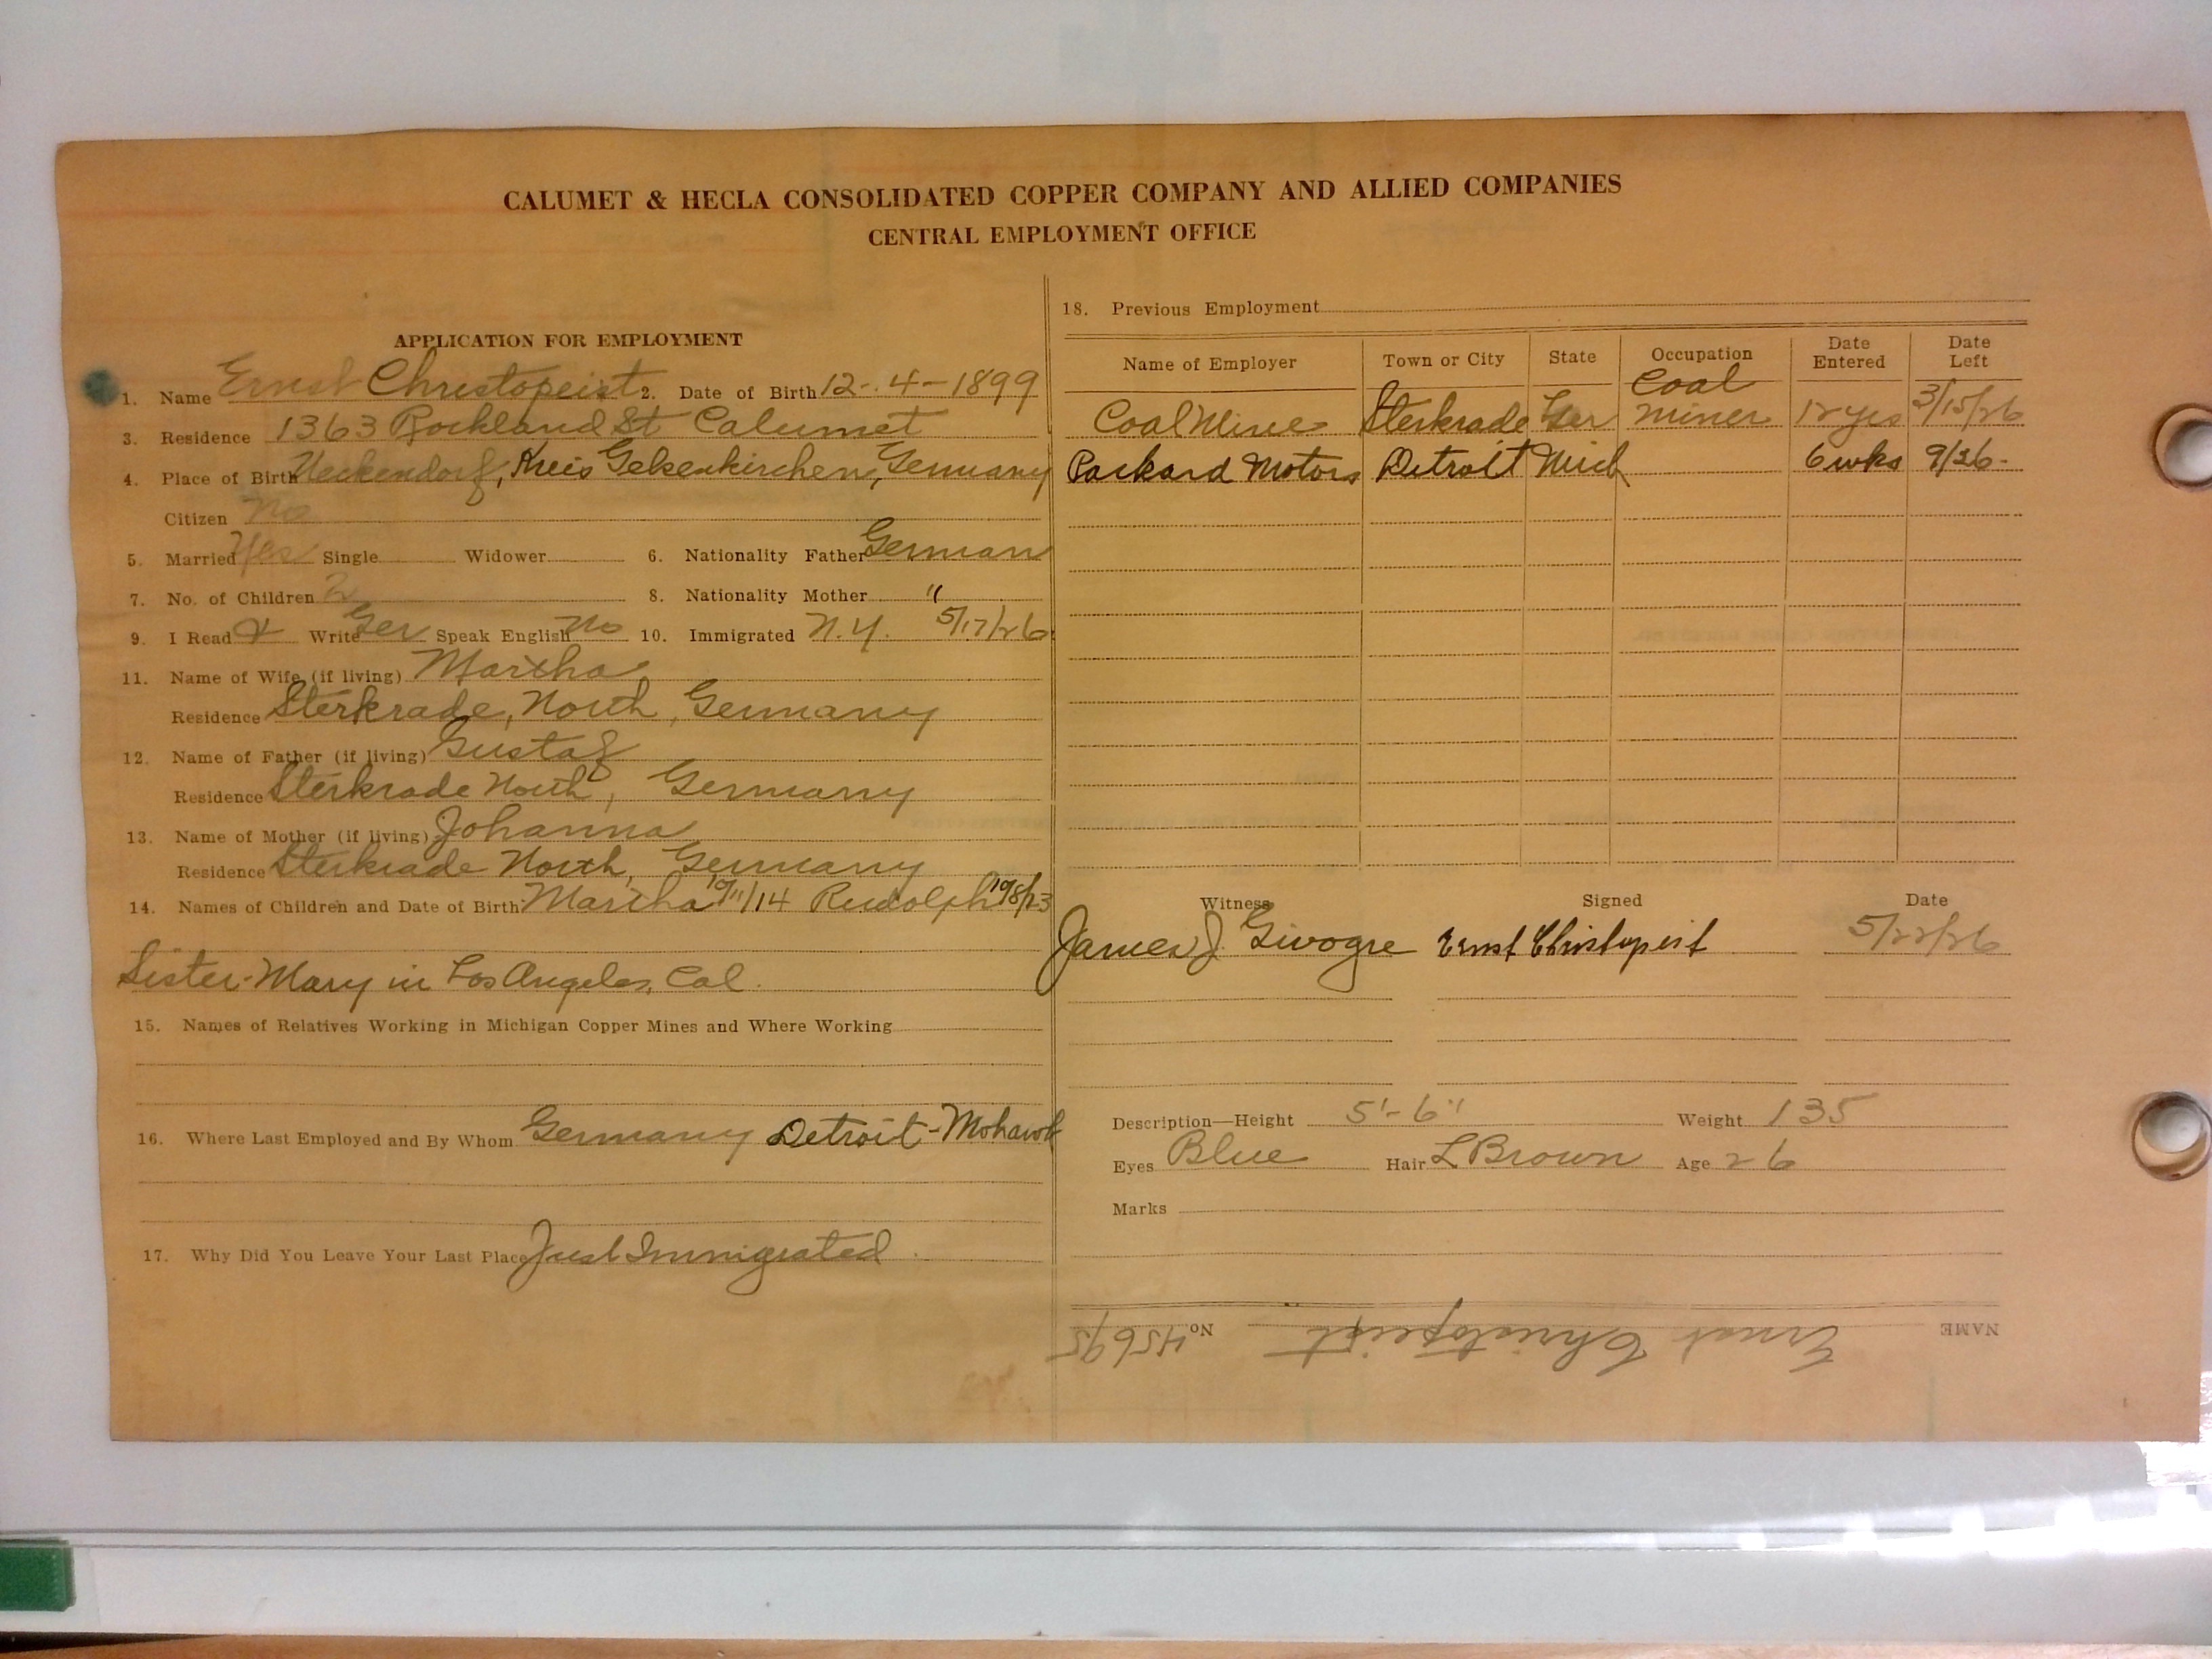 CALUMET & HECLA CONSOLIDATED COPPER COMPANY AND ALLIED COMPANIES
CENTRAL EMPLOYMENT OFFICE
APPLICATION FOR EMPLOYMENT
1. Name Ernst Christopeist 2. Date of Birth 12-4-1899
3. Residence 1363 Rockland St Calumet
4. Place of Birth Ueckendorf, Kreis Gelsenkirchen, Germany
Citizen No
5. Married Yes Single Widower 6. Nationality Father German
7. No. of Children 2 8. Nationality Mother "
9. I Read & Write Ger Speak English No 10. Immigrated N.Y. 5/17/26
11. Name of Wife (if living) Martha
Residence Sterkrade, North, Germany
12. Name of Father (if living) Gustaf
Residence Sterkrade North, Germany
13. Name of Mother (if living) Johanna
Residence Sterkrade North, Germany
14. Names of Children and Date of Birth Martha /14 Rudolph
Sister-Mary in Los Angeles, Cal.
15. Names of Relatives Working in Michigan Copper Mines and Where Working
16. Where Last Employed and By Whom Germany Detroit-Mohawk
17. Why Did You Leave Your Last Place Just Immigrated
18. Previous Employment
Name of Employer Town or City State Occupation Date Entered Date Left
Coal Mine Sterkrade Ger Coal Miner 12 yrs 3/15/26
Packard Motors Detroit Mich 6 wks 9/26-
Witness Signed Date
James J. Givogre Ernst Christopeit 5/22/26
Description—Height 5'-6" Weight 135
Eyes Blue Hair L Brown Age 26
Marks
NAME Ernst Christopeist No. 45695